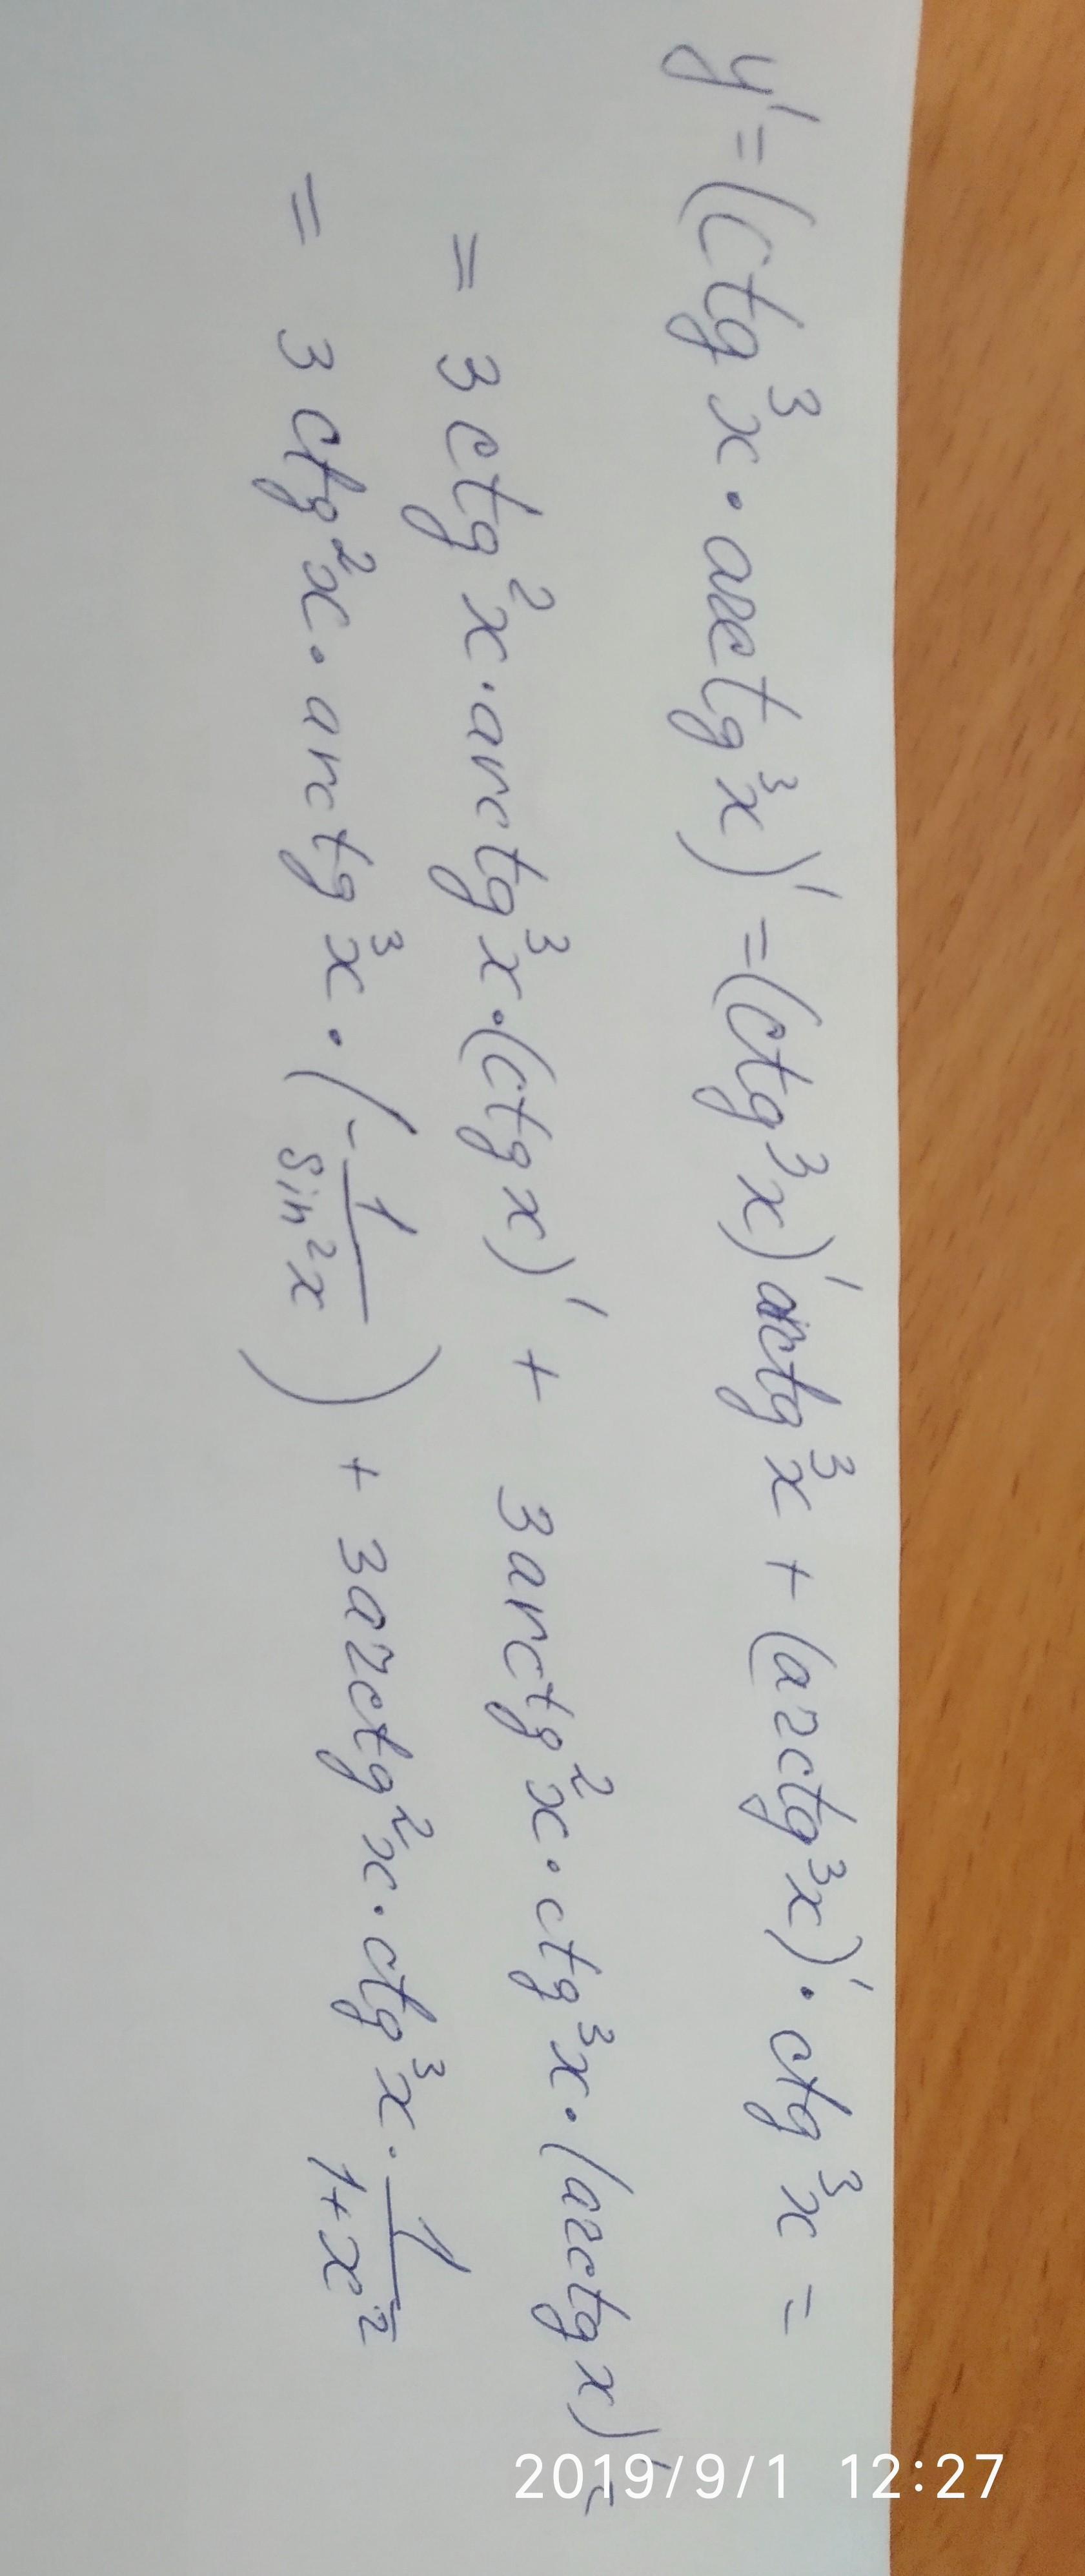 y' = (ctg³x · arctg³x)' = (ctg³x)' arctg³x + (arctg³x)' · ctg³x =
= 3 ctg²x · arctg³x · (ctg x)' + 3 arctg²x · ctg³x · (arctg x)' =
= 3 ctg²x · arctg³x · (- 1/sin²x) + 3 arctg²x · ctg³x · 1/1+x²
2019/9/1 12:27